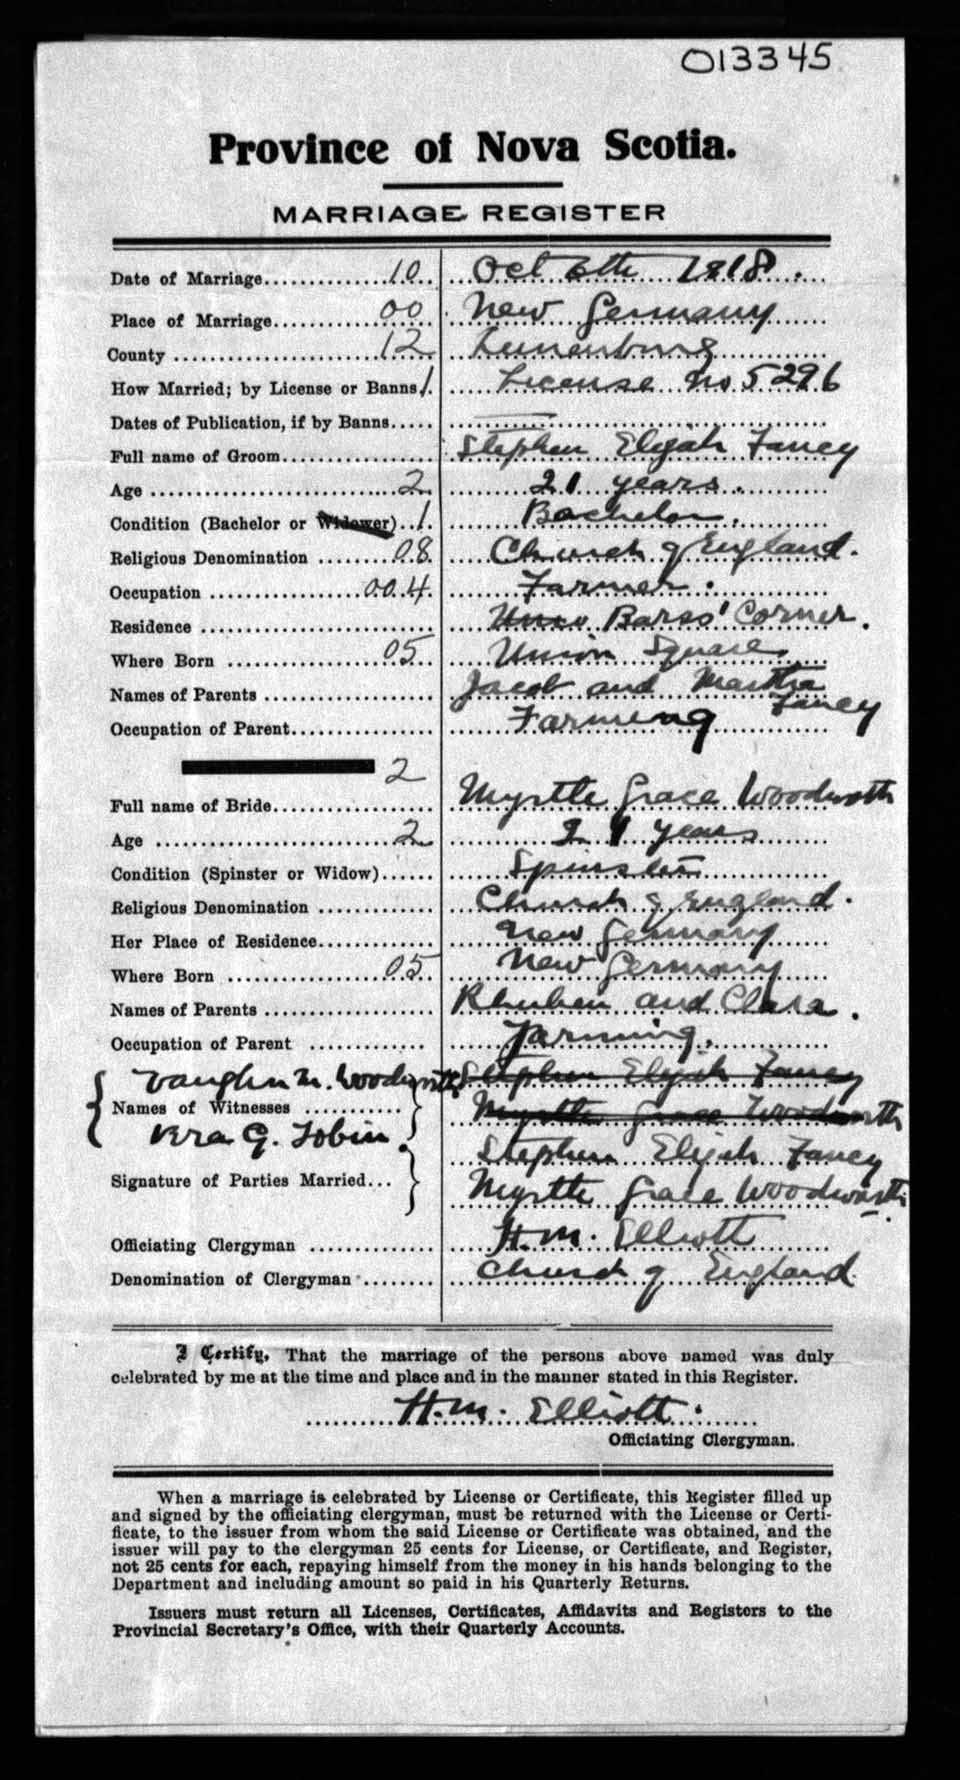 013345
Province of Nova Scotia.
MARRIAGE REGISTER
Date of Marriage...............10.. ...Oct 6th 1918.
Place of Marriage...............00 ..New Germany
County ........................12.. ..Lunenburg
How Married; by License or Banns.1. ....License No 5296
Dates of Publication, if by Banns.....
Full name of Groom............... Stephen Elijah Fancy
Age ...........................2.. 21 years.
Condition (Bachelor or Widower)..1. Bachelor.
Religious Denomination .......08.. Church of England.
Occupation .................004.. Farmer.
Residence ........................ Barss' Corner.
Where Born .................05.. Union Square
Names of Parents ................. Jacob and Martha
Fancy
Occupation of Parent............... Farming
2
Full name of Bride................. Myrtle Grace Woodworth
Age ...........................2.. 21 years
Condition (Spinster or Widow)...... Spinster
Religious Denomination ............ Church of England.
Her Place of Residence............. New Germany
Where Born .................05.. New Germany
Names of Parents ................. Rhuben and Clara.
Occupation of Parent ............ Farming.
Vaughn M. Woodworth Stephen Elijah Fancy
Names of Witnesses .......... Myrtle Grace Woodworth
Vera G. Tobin. Stephen Elijah Fancy
Signature of Parties Married... Myrtle Grace Woodworth
Officiating Clergyman ............. H.M. Elliott
Denomination of Clergyman ........ Church of England
I Certify, That the marriage of the persons above named was duly
celebrated by me at the time and place and in the manner stated in this Register.
H.M. Elliott.
Officiating Clergyman.
When a marriage is celebrated by License or Certificate, this Register filled up
and signed by the officiating clergyman, must be returned with the License or Certi-
ficate, to the issuer from whom the said License or Certificate was obtained, and the
issuer will pay to the clergyman 25 cents for License, or Certificate, and Register,
not 25 cents for each, repaying himself from the money in his hands belonging to the
Department and including amount so paid in his Quarterly Returns.
Issuers must return all Licenses, Certificates, Affidavits and Registers to the
Provincial Secretary's Office, with their Quarterly Accounts.